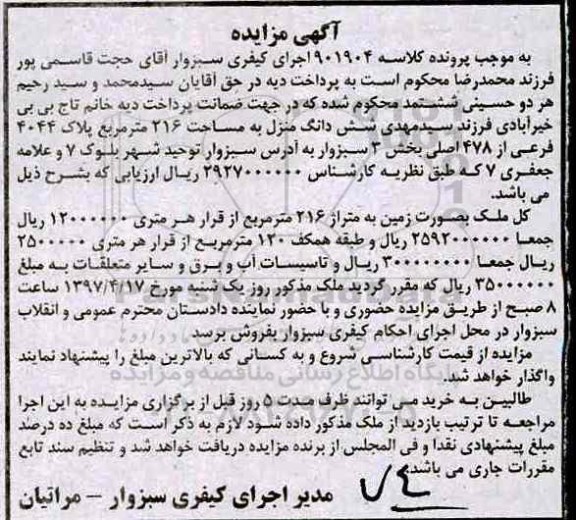 آگهی مزایده
به موجب پرونده کلاسه ۹۰۱۹۰۴ اجرای کیفری سبزوار آقای حجت قاسمی پور
فرزند محمدرضا محکوم است به پرداخت دیه در حق آقایان سیدمحمد و سید رحیم
هر دو حسینی ششتمد محکوم شده که در جهت ضمانت پرداخت دیه خانم تاج بی بی
خیرآبادی فرزند سیدمهدی شش دانگ منزل به مساحت ۲۱۶ مترمربع پلاک ۴۰۴۴
فرعی از ۴۷۸ اصلی بخش ۳ سبزوار به آدرس سبزوار توحید شهر بلوک ۷ و علامه
جعفری ۷ که طبق نظریه کارشناس ۲۹۲۷۰۰۰۰۰۰ ریال ارزیابی که بشرح ذیل
می باشد.
کل ملک بصورت زمین به متراژ ۲۱۶ مترمربع از قرار هر متری ۱۲۰۰۰۰۰۰ ریال
جمعا ۲۵۹۲۰۰۰۰۰۰ ریال و طبقه همکف ۱۲۰ مترمربع از قرار هر متری ۲۵۰۰۰۰۰
ریال جمعا ۳۰۰۰۰۰۰۰۰ ریال و تاسیسات آب و برق و سایر متعلقات به مبلغ
۳۵۰۰۰۰۰۰ ریال که مقرر گردید ملک مذکور روز یک شنبه مورخ ۱۳۹۷/۴/۱۷ ساعت
۸ صبح از طریق مزایده حضوری و با حضور نماینده دادستان محترم عمومی و انقلاب
سبزوار در محل اجرای احکام کیفری سبزوار بفروش برسد
مزایده از قیمت کارشناسی شروع و به کسانی که بالاترین مبلغ را پیشنهاد نمایند
واگذار خواهد شد.
طالبین به خرید می توانند ظرف مدت ۵ روز قبل از برگزاری مزایده به این اجرا
مراجعه تا ترتیب بازدید از ملک مذکور داده شود لازم به ذکر است که مبلغ ده درصد
مبلغ پیشنهادی نقدا و فی المجلس از برنده مزایده دریافت خواهد شد و تنظیم سند تابع
مقررات جاری می باشد.
مدیر اجرای کیفری سبزوار – مراتیان